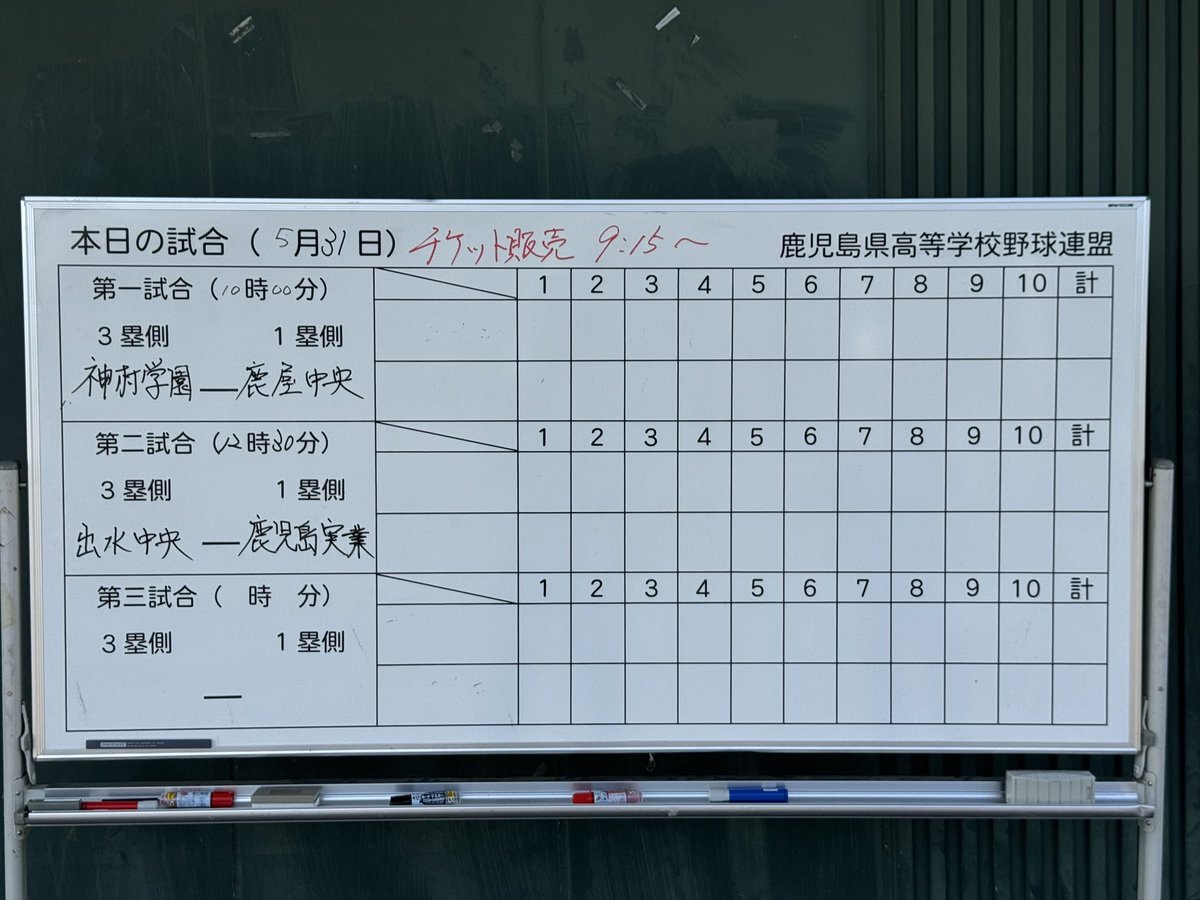 本日の試合 ( 5月31日) チケット販売 9:15～ 鹿児島県高等学校野球連盟
第一試合 (10時00分) 1 2 3 4 5 6 7 8 9 10 計
3塁側 1塁側
神村学園 — 鹿屋中央
第二試合 (12時30分) 1 2 3 4 5 6 7 8 9 10 計
3塁側 1塁側
出水中央 — 鹿児島実業
第三試合 ( 時 分) 1 2 3 4 5 6 7 8 9 10 計
3塁側 1塁側
—